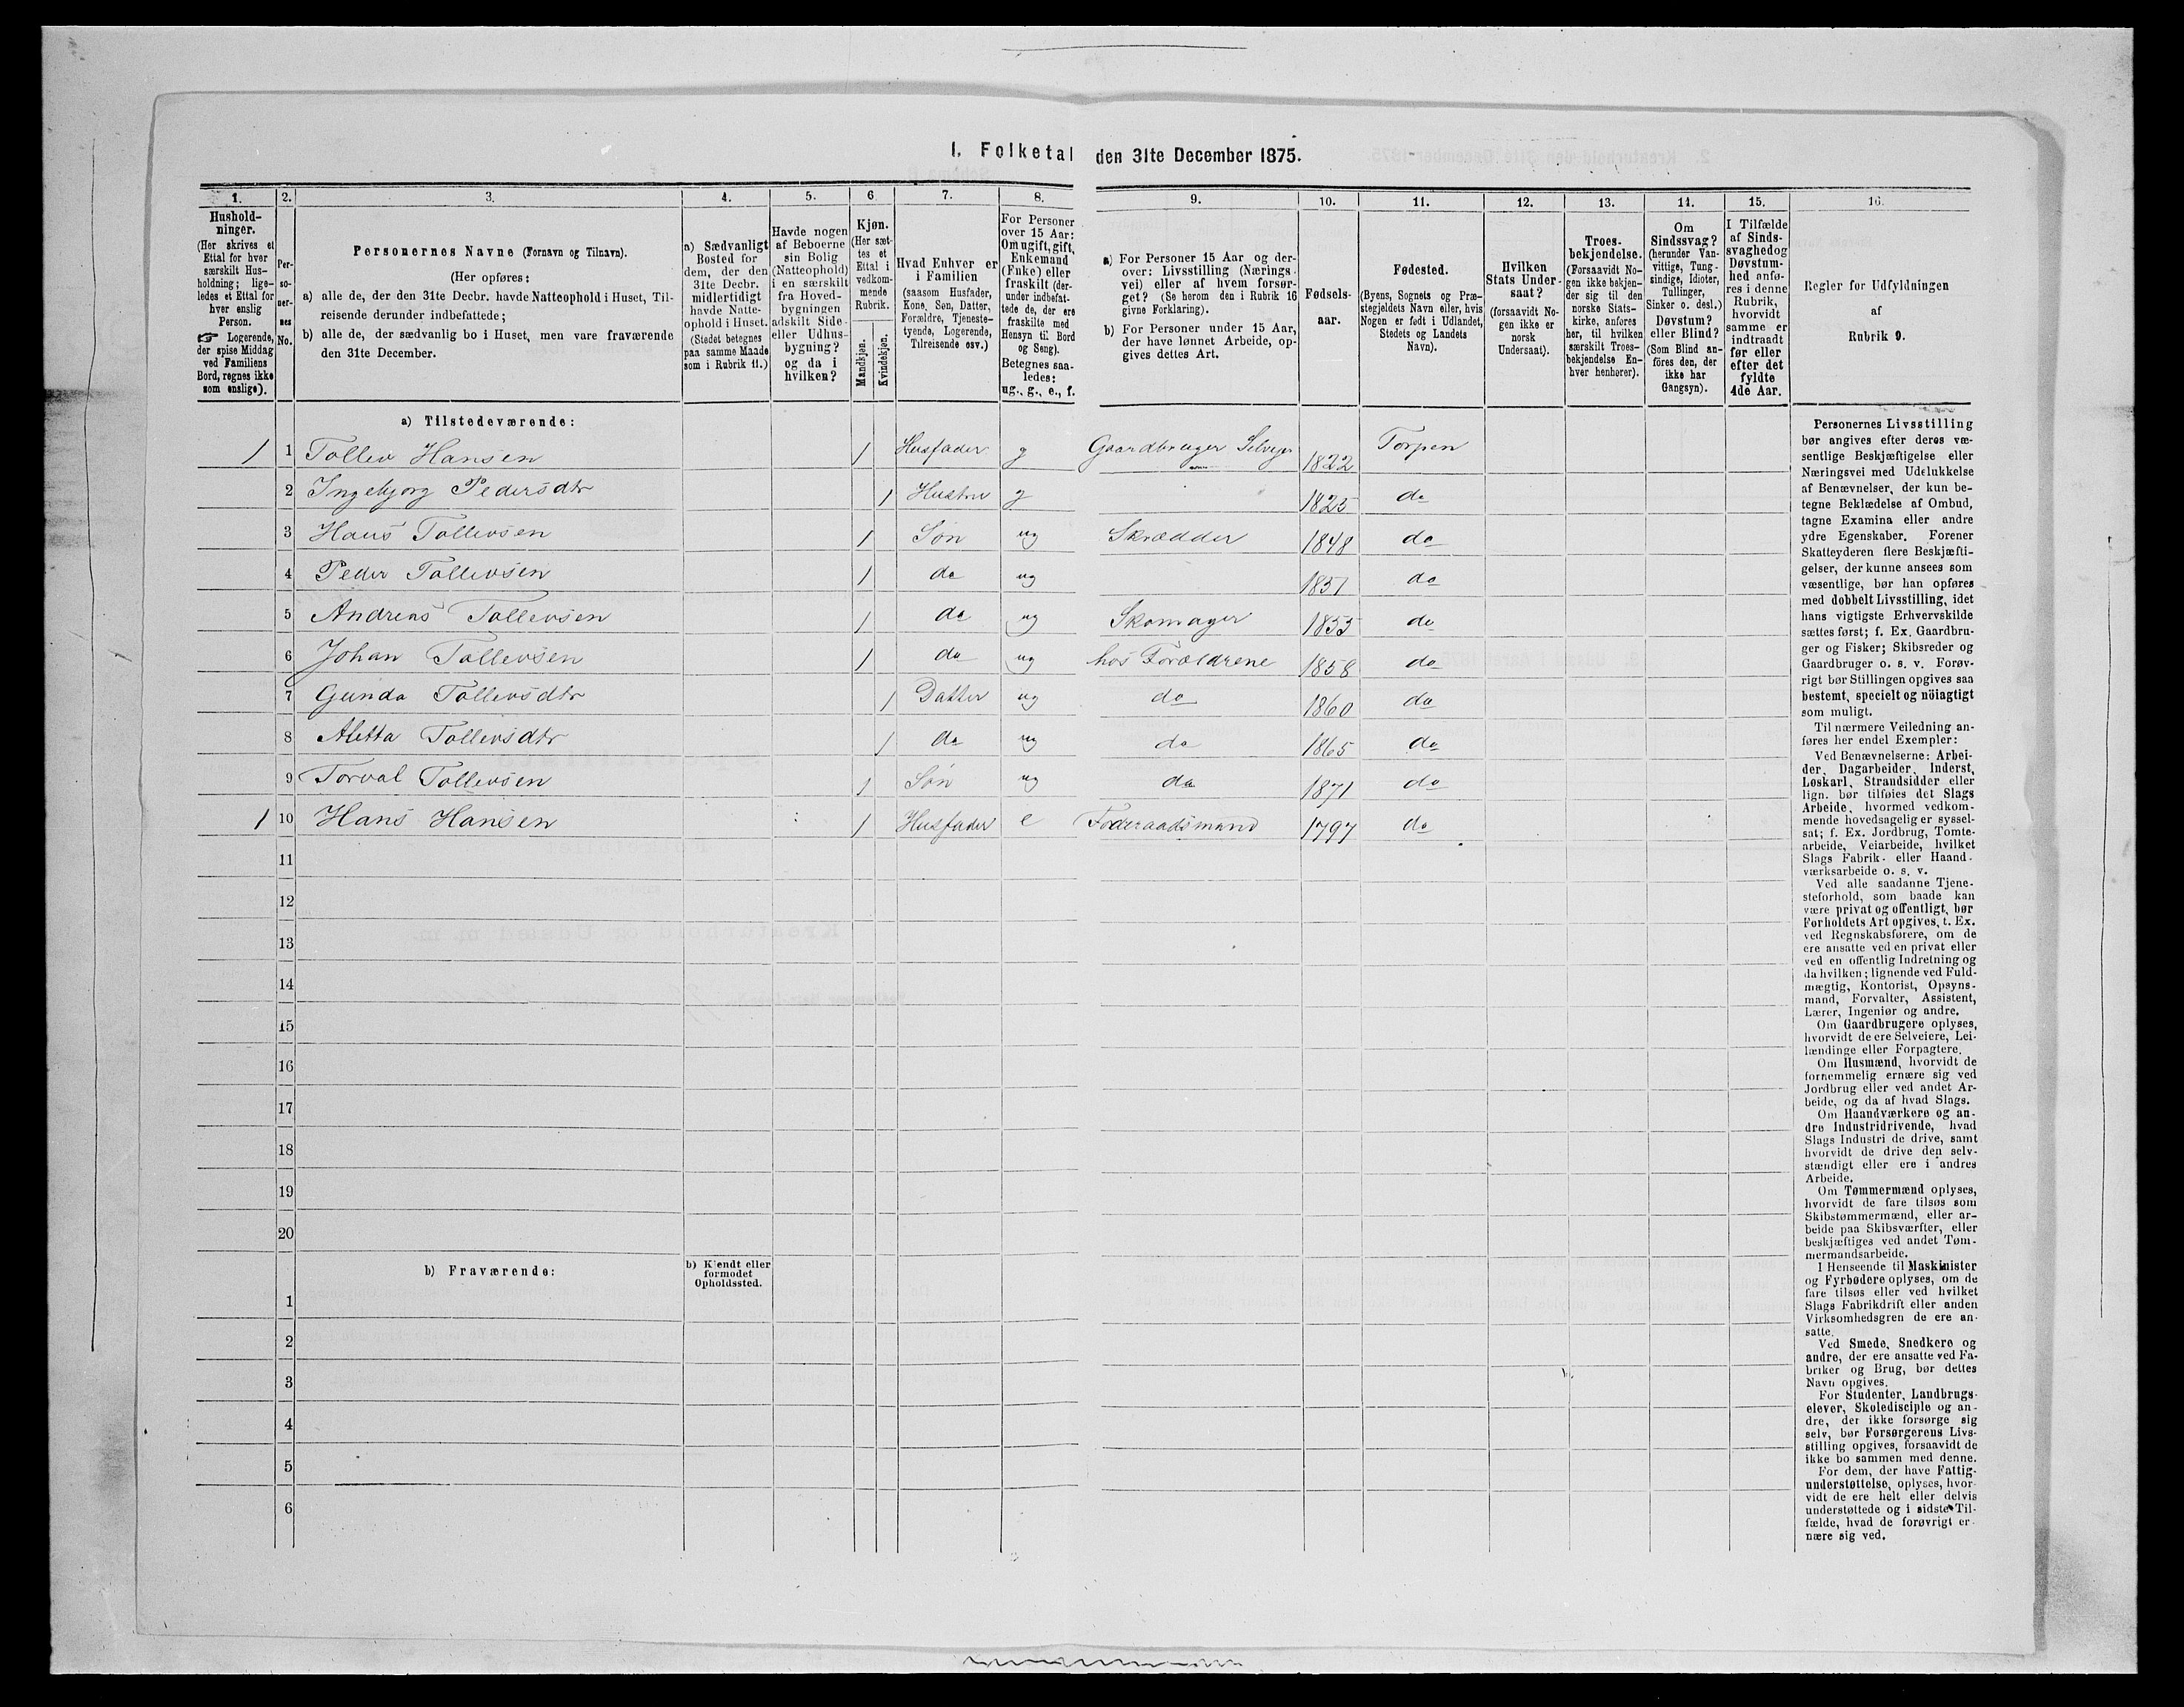 I. Folketal den 31te December 1875.
1. 2. 3. 4. 5. 6. 7. 8. 9. 10. 11. 12. 13. 14. 15. 16.
Hushold-
ninger.
(Her skrives et
Ettal for hver
særskilt Hus-
holdning; lige-
ledes et Ettal for
hver enslig
Person.
☞ Logerende,
der spise Middag
ved Familiens
Bord, regnes ikke
som enslige).
Per-
so-
ner-
nes
No.
Personernes Navne (Fornavn og Tilnavn).
(Her opføres:
a) alle de, der den 31te Decbr. havde Natteophold i Huset, Til-
reisende derunder indbefattede;
b) alle de, der sædvanlig bo i Huset, men vare fraværende
den 31te December.
a) Sædvanligt
Bosted for
dem, der den
31te Decbr.
midlertidigt
havde Natte-
ophold i Huset.
(Stedet betegnes
paa samme Maade
som i Rubrik 11.)
Havde nogen
af Beboerne
sin Bolig
(Natteophold)
i en særskilt
fra Hoved-
bygningen
adskilt Side-
eller Udhus-
bygning?
og da i
hvilken?
Kjøn.
(Her sæt-
tes et
Ettal i
vedkom-
mende
Rubrik.
Mandkjøn.
Kvindekjøn.
Hvad Enhver er
i Familien
(saasom Husfader,
Kone, Søn, Datter,
Forældre, Tjeneste-
tyende, Logerende,
Tilreisende osv.)
For Personer
over 15 Aar:
Om ugift, gift,
Enkemand
(Enke) eller
fraskilt (der-
under indbefat-
tede de, der ere
fraskilte med
Hensyn til Bord
og Seng).
Betegnes saa-
ledes:
ug., g., e., f.
a) For Personer 15 Aar og der-
over: Livsstilling (Nærings-
vei) eller af hvem forsør-
get? (Se herom den i Rubrik 16
givne Forklaring).
b) For Personer under 15 Aar,
der have lønnet Arbeide, op-
gives dettes Art.
Fødsels-
aar.
Fødested.
(Byens, Sognets og Præ-
stegjeldets Navn eller, hvis
Nogen er født i Udlandet,
Stedets og Landets
Navn).
Hvilken
Stats Under-
saat?
(forsaavidt No-
gen ikke er
norsk
Undersaat).
Troes-
bekjendelse.
(Forsaavidt No-
gen ikke bekjen-
der sig til den
norske Stats-
kirke, anføres
her, til hvilken
særskilt Troes-
bekjendelse En-
hver henhører).
Om
Sindssvag?
(herunder Van-
vittige, Tung-
sindige, Idioter,
Tullinger,
Sinker o. desl.)
Døvstum?
eller Blind?
(Som Blind an-
föres den, der
ikke har
Gangsyn).
I Tilfælde
af Sinds-
svaghed og
Døvstum-
hed anfø-
res i denne
Rubrik,
hvorvidt
samme er
indtraadt
før eller
efter det
fyldte
4de Aar.
Regler for Udfyldningen
af
Rubrik 9.
a) Tilstedeværende:
1 1 Tollev Hansen 1 Husfader g Gaardbruger Selveger 1822 Torpen
2 Ingebjorg Pedersdtr 1 Hustru g 1825 do
3 Hans Tollevsen 1 Søn ug Skrædder 1848 do
4 Peder Tollevsen 1 do ug 1851 do
5 Andreas Tollevsen 1 do ug Skomager 1855 do
6 Johan Tollevsen 1 do ug hos Forældrene 1858 do
7 Gunda Tollevsdtr 1 Datter ug do 1860 do
8 Aletta Tollevsdtr 1 do ug do 1865 do
9 Torval Tollevsen 1 Søn ug do 1871 do
1 10 Hans Hansen 1 Husfader e Foderaadsmand 1797 do
11
12
13
14
15
16
17
18
19
20
b) Fraværende:
b) Kjendt eller
formodet
Opholdssted.
1
2
3
4
5
6
Personernes Livsstilling
bør angives efter deres væ-
sentlige Beskjæftigelse eller
Næringsvei med Udelukkelse
af Benævnelser, der kun be-
tegne Beklædelse af Ombud,
tagne Examina eller andre
ydre Egenskaber. Forener
Skatteyderen flere Beskjæfti-
gelser, der kunne ansees som
væsentlige, bør han opføres
med dobbelt Livsstilling, idet
hans vigtigste Erhvervskilde
sættes først; f. Ex. Gaardbru-
ger og Fisker; Skibsreder og
Gaardbruger o. s. v. Forøv-
rigt bør Stillingen opgives saa
bestemt, specielt og nöiagtigt
som muligt.
Til nærmere Veiledning an-
føres her endel Exempler:
Ved Benævnelserne: Arbei-
der, Dagarbeider, Inderst,
Løskarl, Strandsidder eller
lign. bør tilføies det Slags
Arbeide, hvormed vedkom-
mende hovedsagelig er syssel-
sat; f. Ex. Jordbrug, Tomte-
arbeide, Veiarbeide, hvilket
Slags Fabrik- eller Haand-
værksarbeide o. s. v.
Ved alle saadanne Tjene-
steforhold, som baade kan
være privat og offentligt, bør
Forholdets Art opgives, t. Ex.
ved Regnskabsførere, om de
ere ansatte ved en privat eller
ved en offentlig Indretning og
da hvilken; lignende ved Fuld-
mægtig, Kontorist, Opsyns-
mand, Forvalter, Assistent,
Lærer, Ingeniør og andre.
Om Gaardbrugere oplyses,
hvorvidt de ere Selveiere, Lei-
lændinge eller Forpagtere.
Om Husmænd, hvorvidt de
fornemmelig ernære sig ved
Jordbrug eller ved andet Ar-
beide, og da af hvad Slags.
Om Haandværkere og an-
dre Industridrivende, hvad
Slags Industri de drive, samt
hvorvidt de drive den selv-
stændigt eller ere i andres
Arbeide.
Om Tømmermænd oplyses,
hvorvidt de fare tilsøs som
Skibstømmermænd, eller ar-
beide paa Skibsværfter, eller
beskjæftiges ved andet Tøm-
mermandsarbeide.
I Henseende til Maskinister
og Fyrbødere oplyses, om de
fare tilsøs eller ved hvilket
Slags Fabrikdrift eller anden
Virksomhedsgren de ere an-
satte.
Ved Smede, Snedkere og
andre, der ere ansatte ved Fa-
briker og Brug, bør dettes
Navn opgives.
For Studenter, Landbrugs-
elever, Skoledisciple og an-
dre, der ikke forsørge sig
selv, bør Forsørgerens Livs-
stilling opgives, forsaavidt de
ikke bo sammen med denne.
For dem, der have Fattig-
understøttelse, oplyses, hvor-
vidt de ere helt eller delvis
understøttede og i sidste Til-
fælde, hvad de forøvrigt er-
nære sig ved.